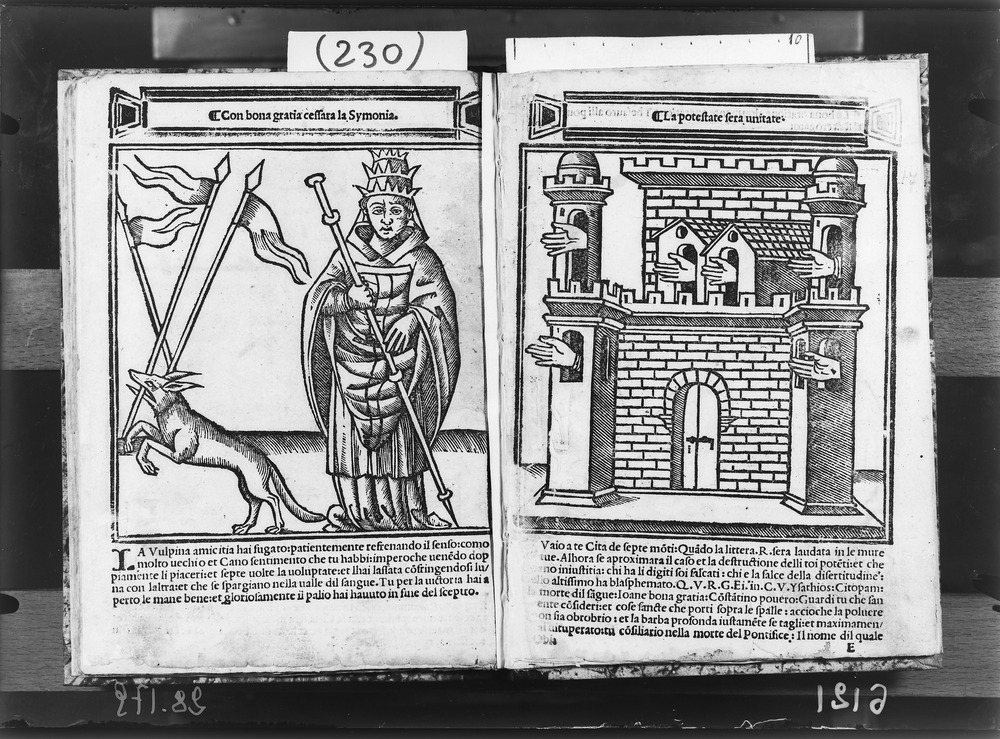 (230)
10
⸿Con bona gratia cessara la Symonia.
LA Vulpina amicitia hai fugato:patientemente refrenando il senso:como
molto uechio et Cano sentimento che tu habbi:imperoche uenēdo dop
piamente li piaceri:et septe uolte la uoluptate:et lhai lassata cōstringendosi lu/
na con laltra:et che se spargiano nella ualle dil sangue. Tu per la uictoria hai a
perto le mane bene:et gloriosamente il palio hai hauuto in fine del sceptro.
⸿La potestate sera unitate:
Vaio a te Cita de septe mōti:Quādo la littera.R.sera laudata in le mure
tue.Alhora se aproximara il caso et la destructione delli toi potēti:et che
no iniustitia:chi ha li digiti soi fuscati:chi e la falce della disertitudine:
altissimo ha blasphemato.Q.V.R.G.Ei.in.C.V.Ysathios:Citopam:
morte dil sāgue:Ioane bona gratia:Cōstātino pouero:Guardi tu che san
ente cōsideri:et cose sancte che porti sopra le spalle:accioche la poluere
on sia obrobrio:et la barba profonda iustamēte se tagli:et maximamen/
uituperato:tu cōsiliario nella morte del Pontifice:Il nome dil quale
E
28.178
6121